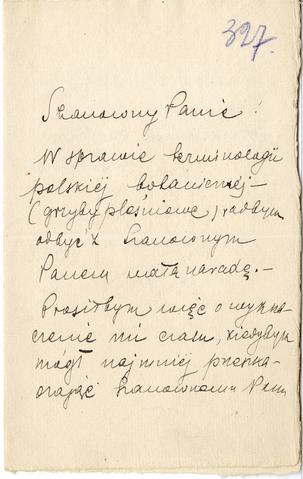 327.
Szanowny Panie!
W sprawie terminologii
polskiéj botanicznéj –
(grzyby pleśniowe) radbym
odbyć z Szanownym
Panem małą naradę. –
Prosiłbym więc o wyzna-
czenie mi czasu, kiedybym
mógł najmniej przeszka-
dzając Szanownemu Panu